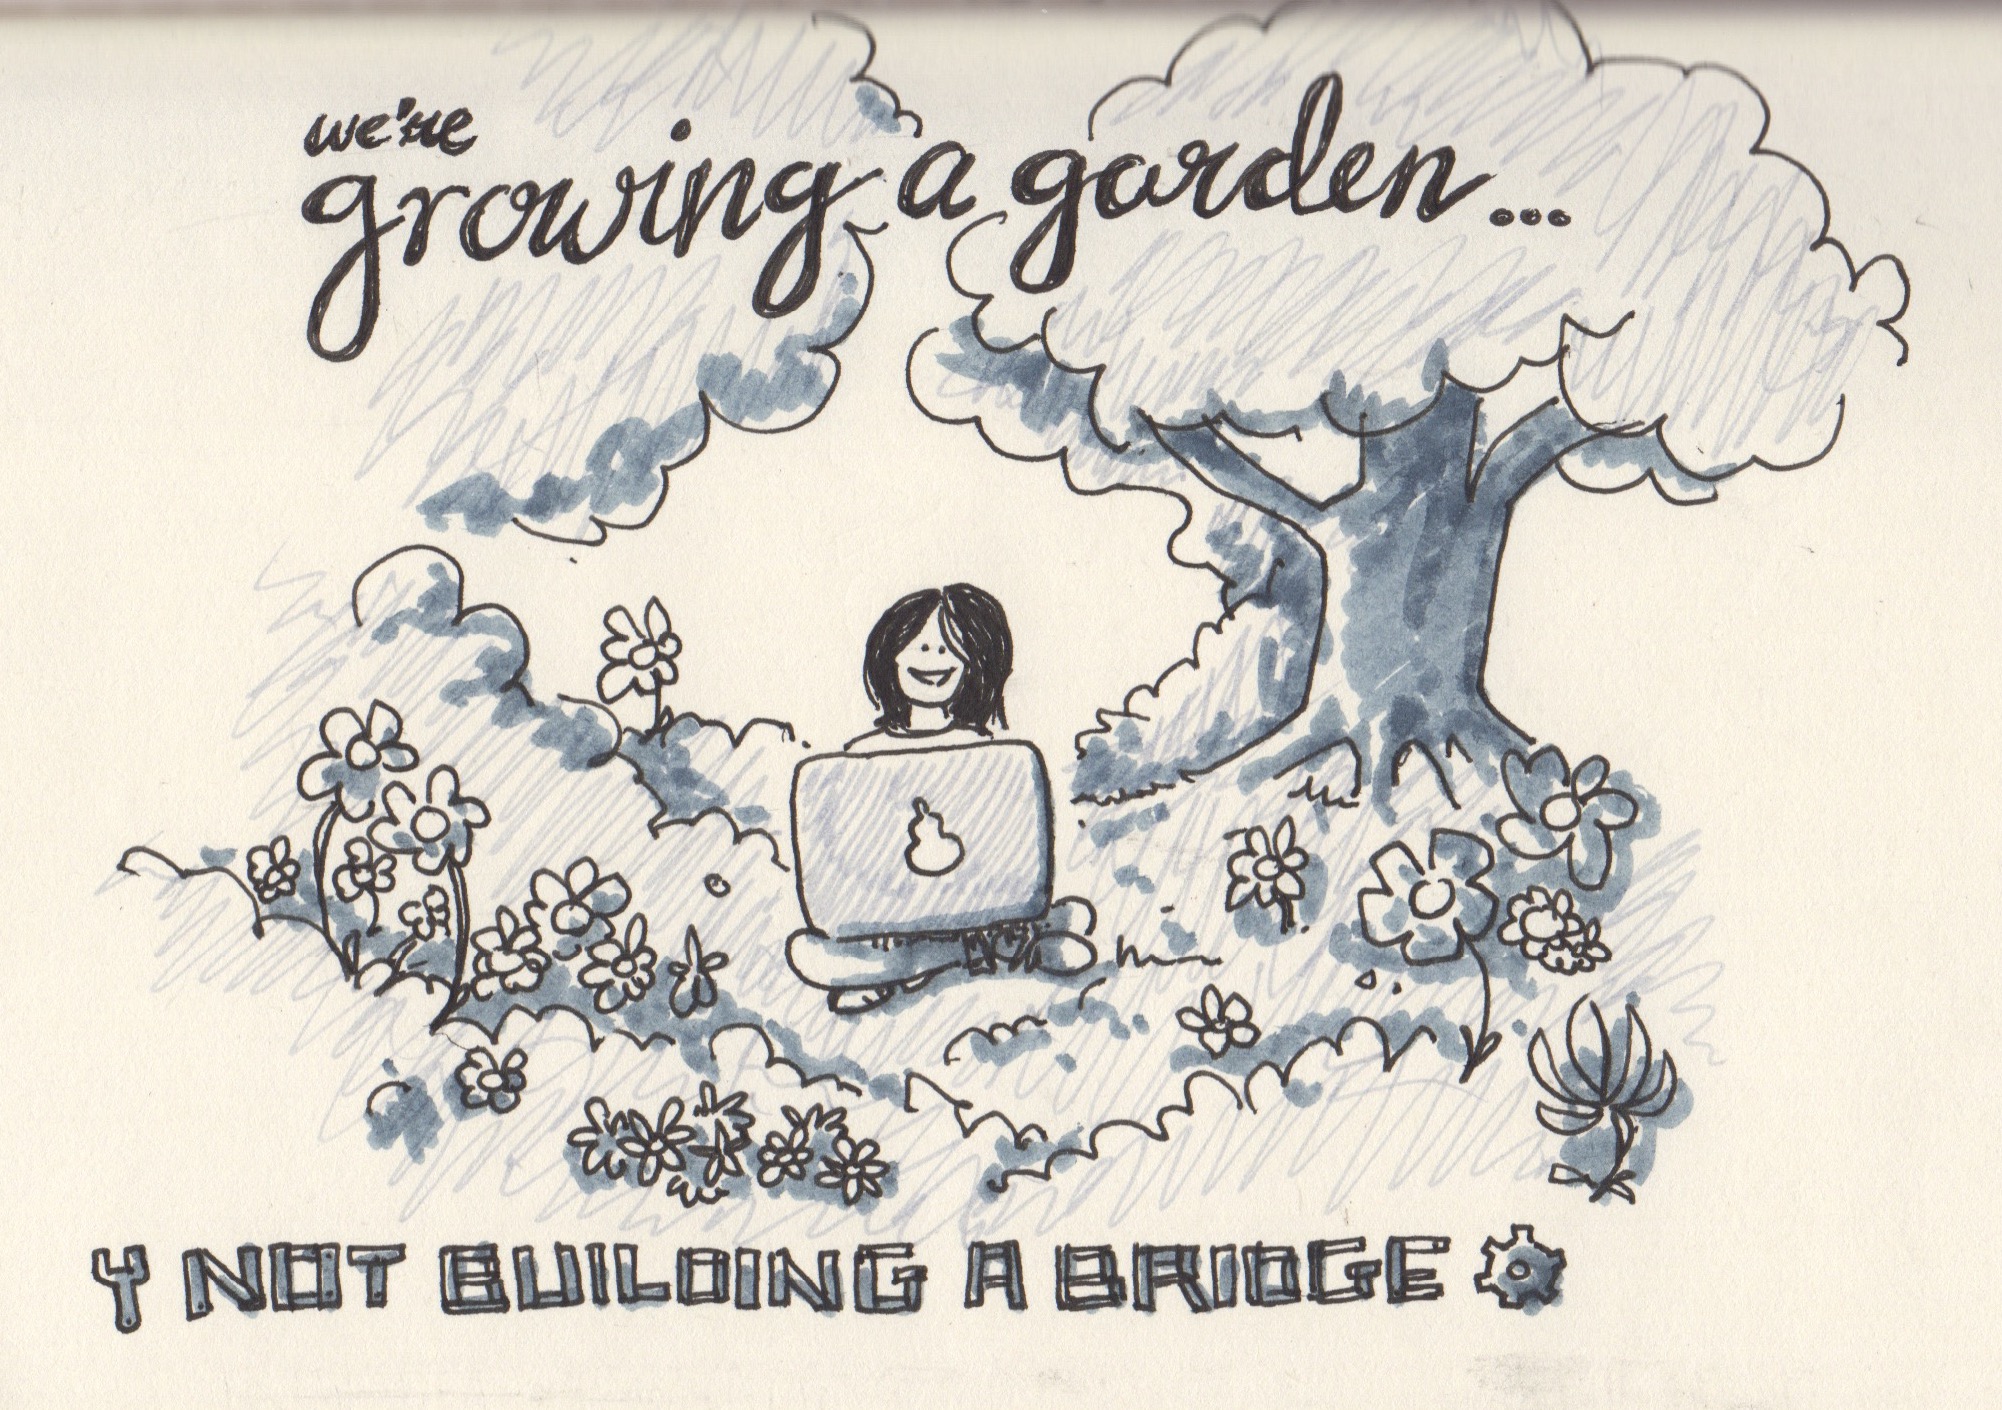 we're
growing a garden...
NOT BUILDING A BRIDGE